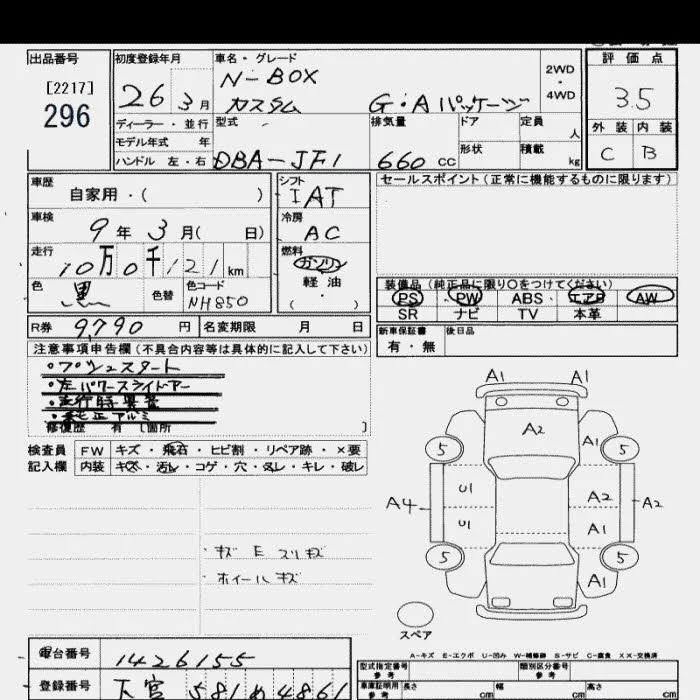 出品番号
[2217]
296
初度登録年月
26 3月
車名・グレード
N-BOX
カスタム G・Aパッケージ
2WD
・
4WD
評価点
3.5
外装 内装
C B
ディーラー・並行
モデル年式 年
ハンドル 左・右
型式
DBA-JF1
排気量
660 CC
ドア
形状
定員
人
積載
kg
車歴
自家用・( )
車検
9年3月( 日)
走行
10万0千121km
色
黒
色替
色コード
NH850
シフト
IAT
冷房
AC
燃料
ガソリン
軽油
( ・ )
セールスポイント(正常に機能するものに限ります)
装備品(純正品に限り○をつけてください)
PS PW ABS エアB AW
SR ナビ TV 本革
R券 9790円
名変期限 月 日
新車保証書
有・無
後日品
注意事項申告欄(不具合内容等は具体的に記入して下さい)
・プッシュスタート
・左パワースライドドアー
・純正アルミ
修復歴 有 [箇所 ]
検査員
記入欄
FW キズ・飛石・ヒビ割・リペア跡・×要
内装 キズ・汚れ・コゲ・穴・スレ・キレ・破レ
・キズ E スリキズ
・ホイールキズ
A1 A1
A2
5 A1 5
U1 A2
A4 A2
U1 A1
5 5
A1
スペア
A-キズ E-エクボ U-凹み W-補修跡 S-サビ C-腐食 XX-交換済
電台番号
1426155
登録番号
581 あ 4861
型式指定番号
参考
類別区分番号
参考
車庫証明用
参考
長さ
cm
幅
cm
高さ
cm